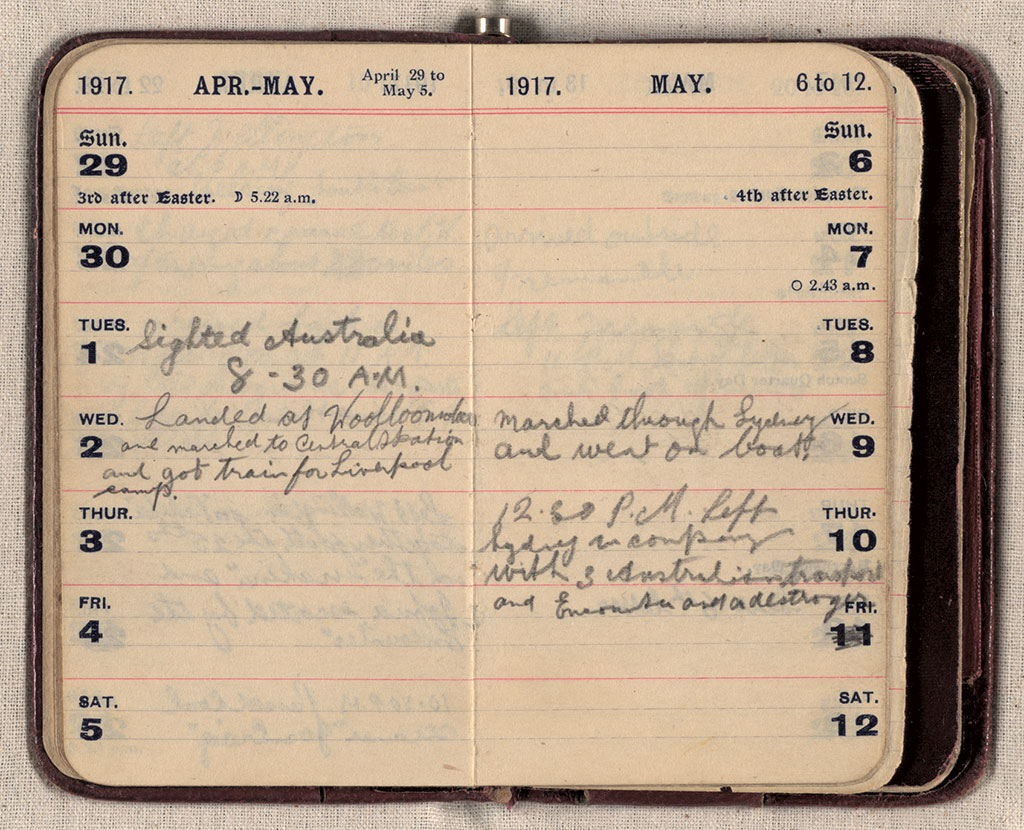 1917. APR.-MAY. April 29 to May 5.
Sun.
29
3rd after Easter. D 5.22 a.m.
MON.
30
TUES.
1 Sighted Australia
8-30 A.M.
WED. Landed at Woolloomooloo
2 and marched to Central Station
and got train for Liverpool
camp.
THUR.
3
FRI.
4
SAT.
5
1917. MAY. 6 to 12.
Sun.
6
4th after Easter.
MON.
7
O 2.43 a.m.
TUES.
8
marched through Sydney WED.
and went on boat. 9
12.30 P.M. left THUR.
Sydney in company 10
with 3 Australian transport
and Encounter and a destroyer FRI.
11
SAT.
12